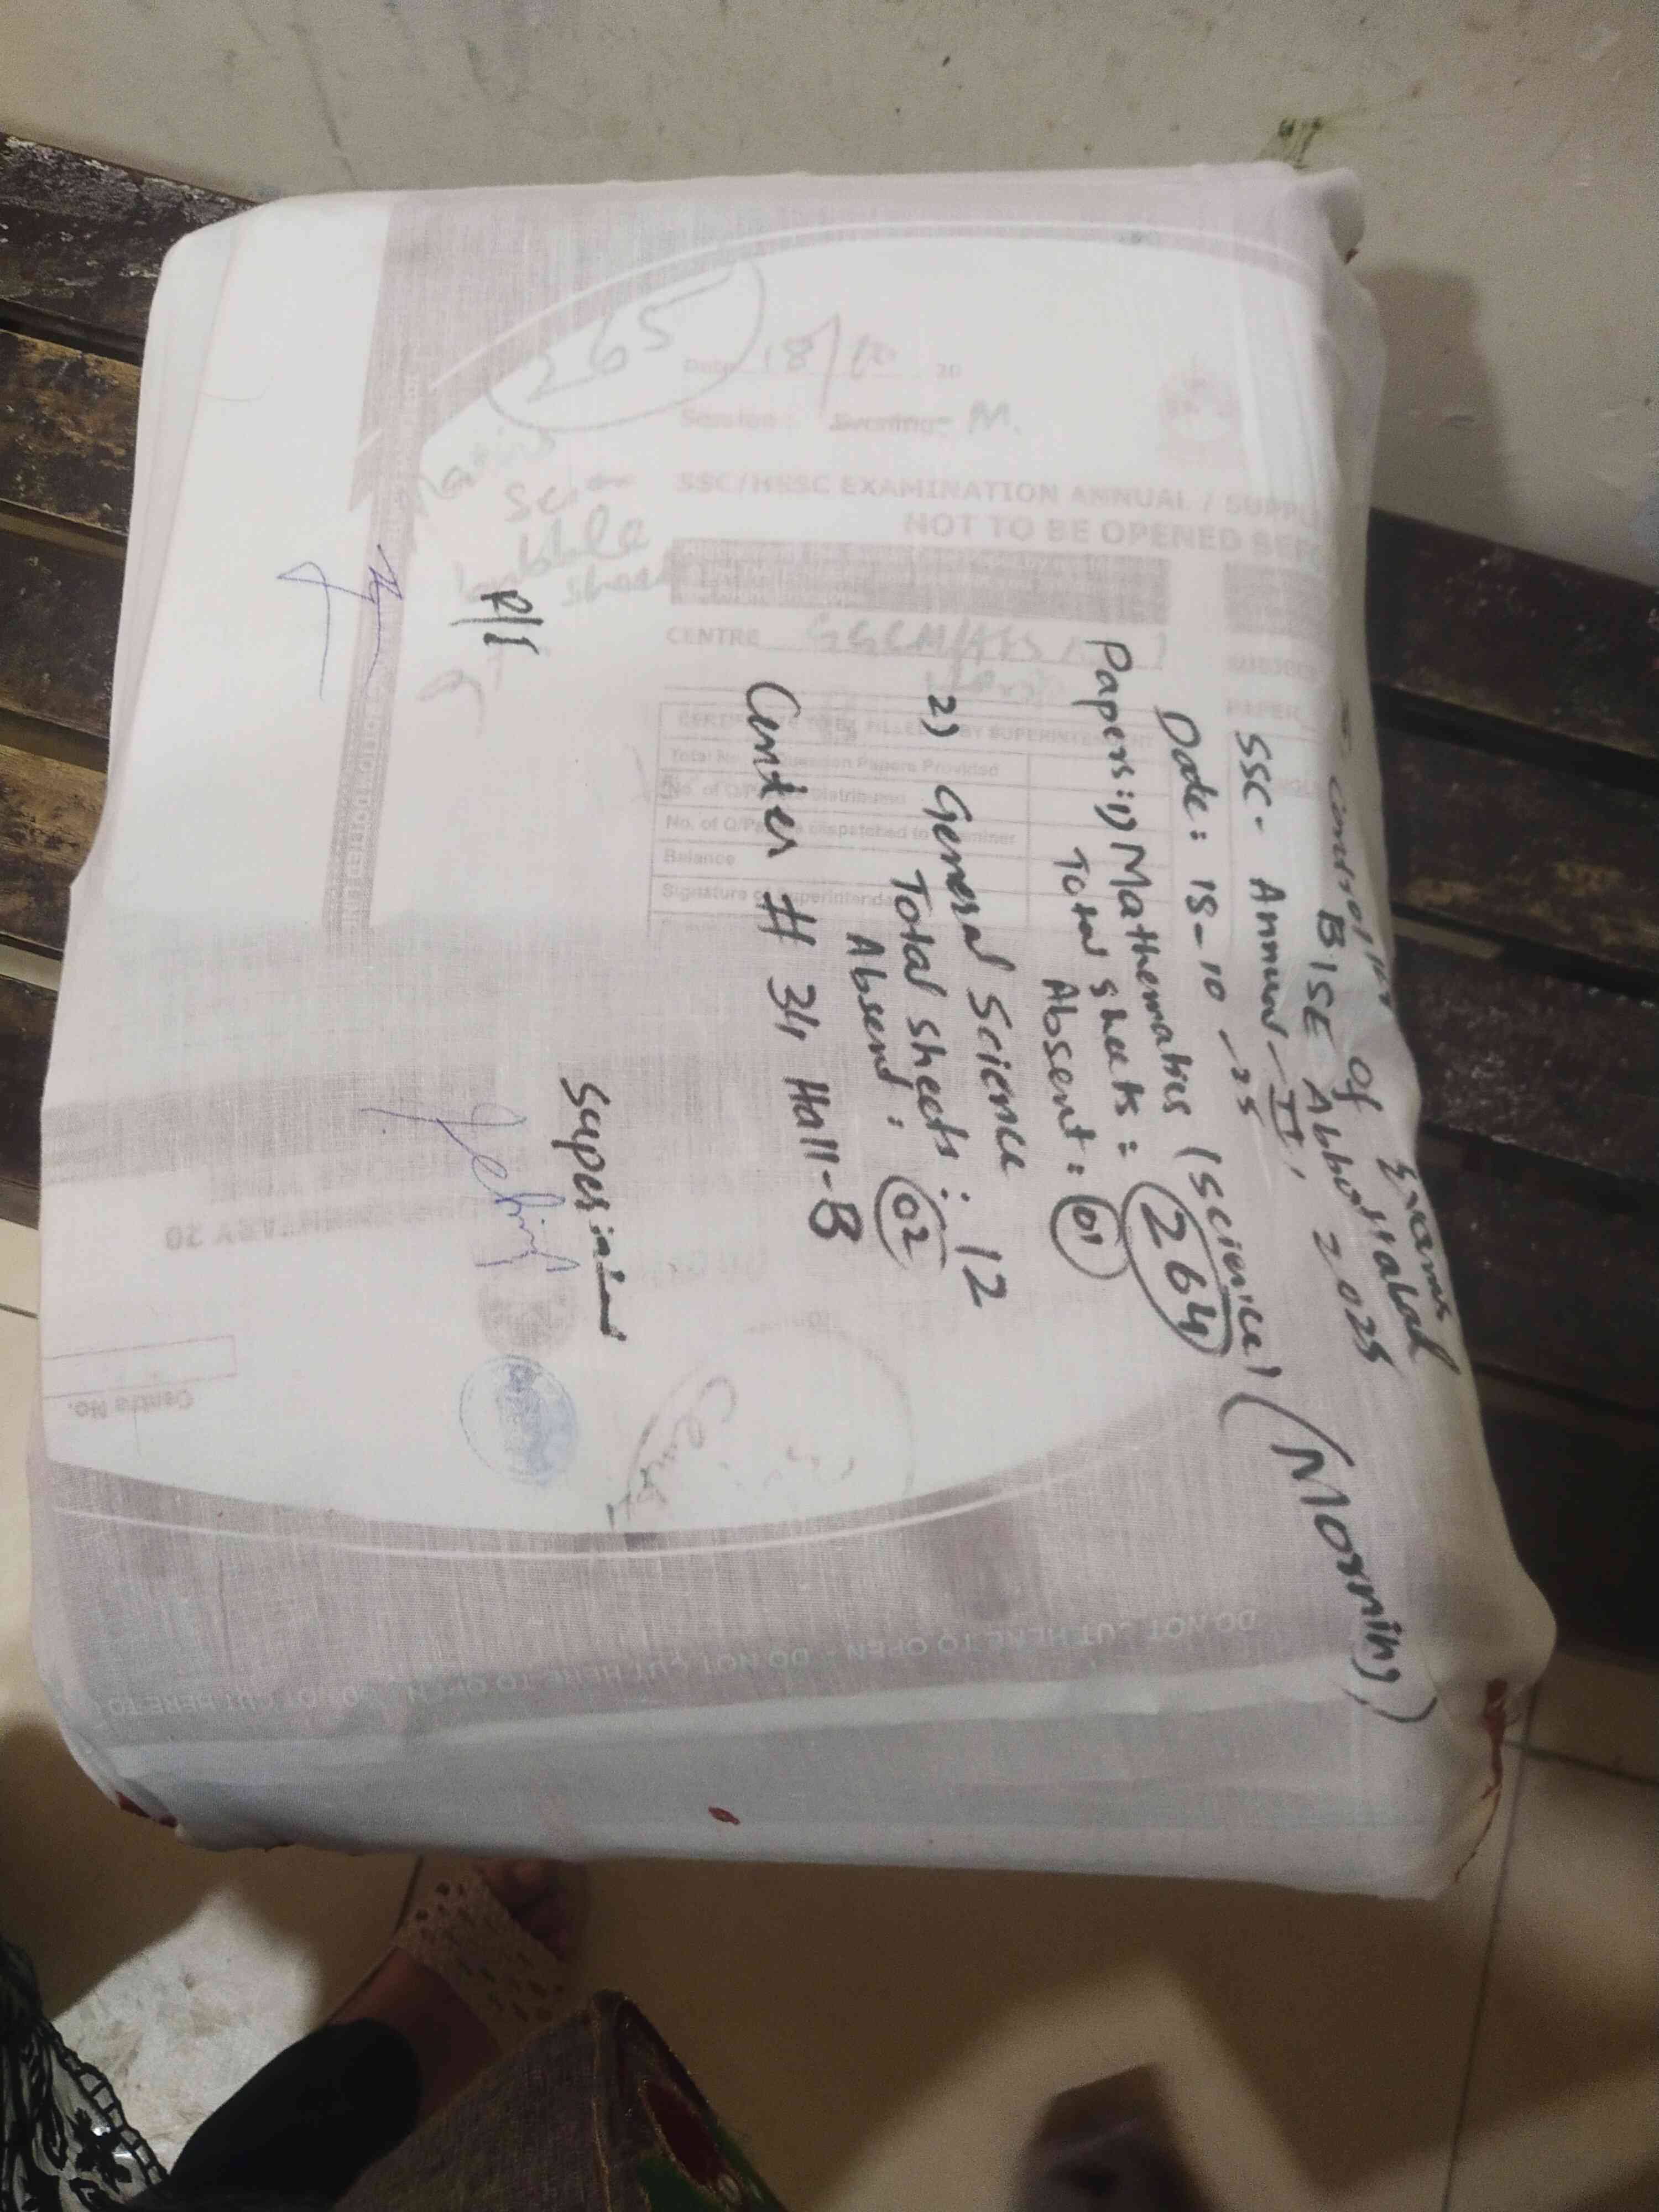 Controller of Exams
BISE Abbottabad
SSC- Annual-II, 2025
(Morning)
Date: 18-10-25
Papers: 1) Mathematics (Science)
Total sheets: 264
Absent: 01
2) General Science
Total sheets: 12
Absent: 02
Center # 34 Hall-B
R/I
265
Date 18/10 20
Session: Evening- M.
SSC/HSSC EXAMINATION ANNUAL / SUPPL
NOT TO BE OPENED BEFO
bubble
sheet
CENTRE
PAPER
CERTIFICATE TO BE FILLED BY SUPERINTENDENT
Total No. Question Papers Provided
No. of Q/Papers Distributed
No. of Q/Papers Dispatched to Examiner
Balance
Signature of Superintendent
Centre No.
DO NOT CUT HERE TO OPEN - DO NOT CUT HERE TO OPEN - DO NOT CUT HERE TO